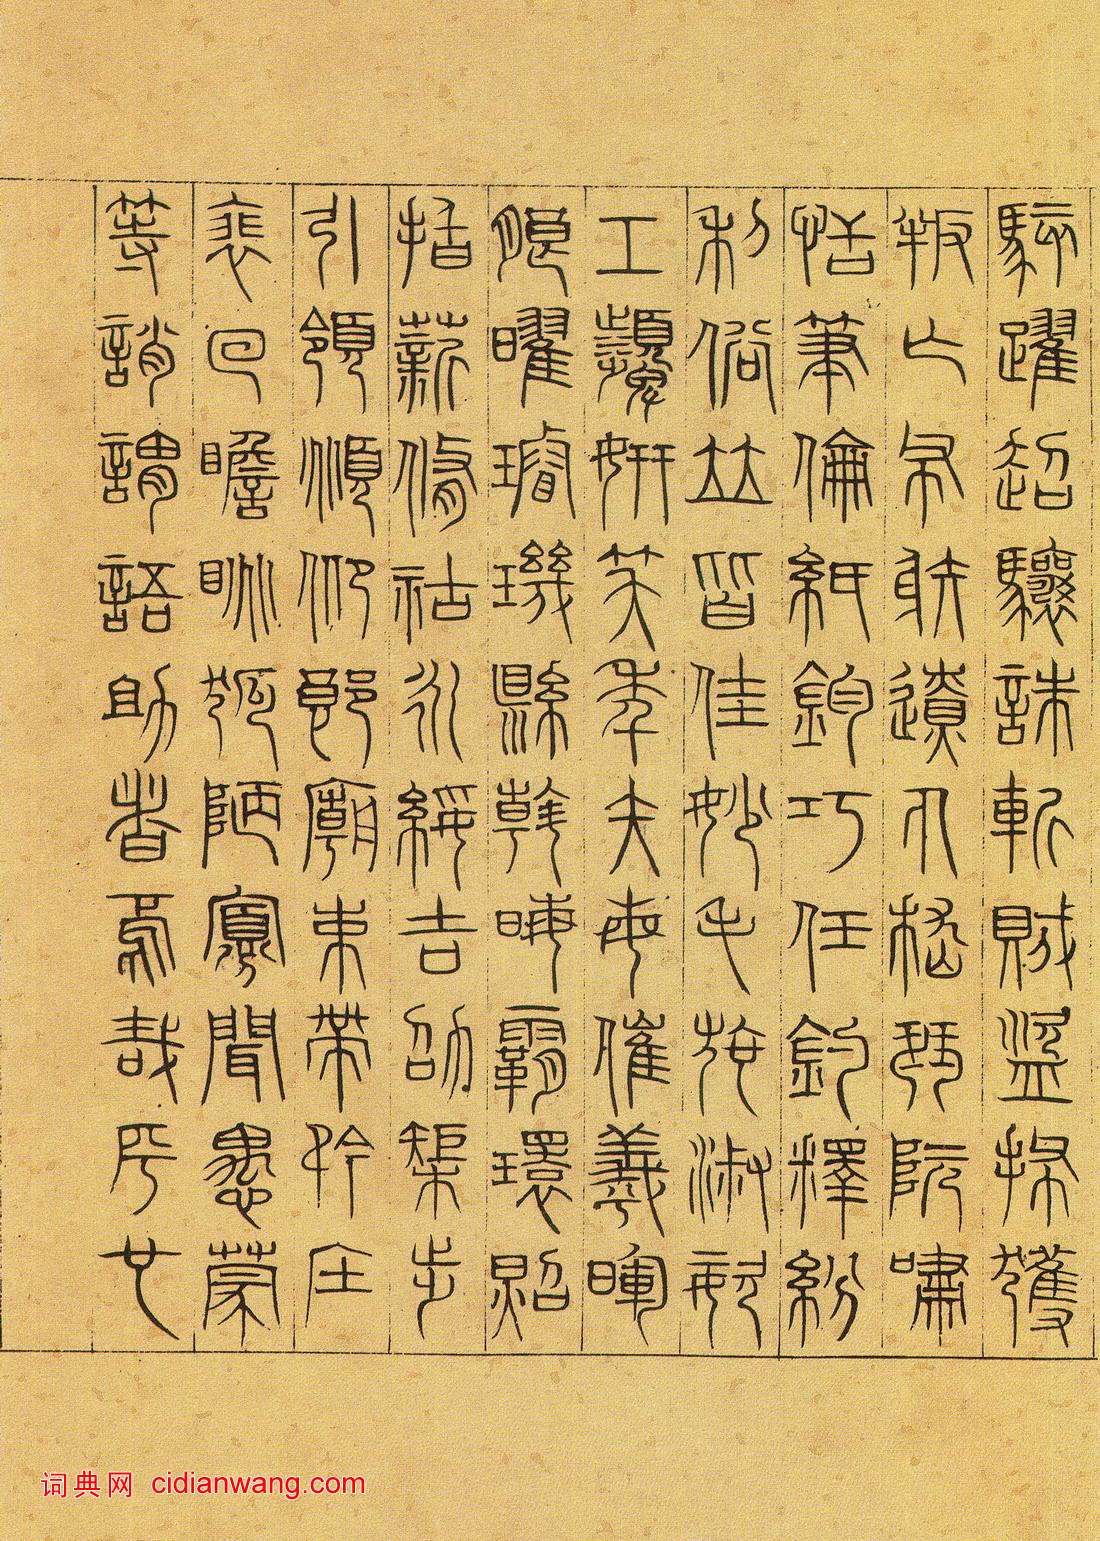 駭躍超驤誅斬賊盜捕獲
叛亡布射遼丸嵇琴阮嘯
恬筆倫紙鈞巧任釣釋紛
利俗並皆佳妙毛施淑姿
工顰妍笑年矢每催羲暉
朗曜璿璣縣斡晦霸環照
指薪修祜永綏吉劭矩步
引領頫仰郎廟束帶矜莊
裵回瞻眺孤陋寡聞愚蒙
等誚謂語助者焉哉乎也
词典网 cidianwang.com